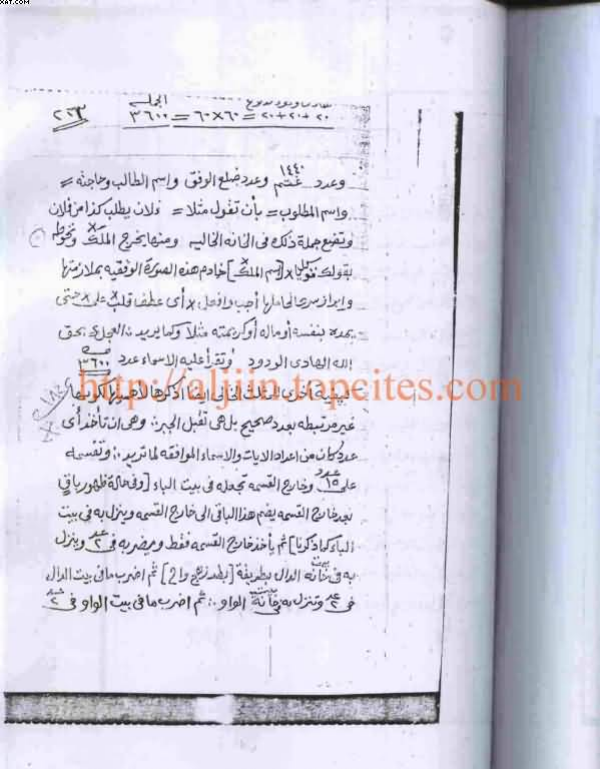 XAT.COM
٢٠+٢٠+٢٠ = ٦٠×٦٠ = ٣٦٠٠ الجملة
٢٢٣
١٤٤٠
وعدد وعدد ضلع الوفق واسم الطالب وحاجته =
واسم المطلوب = بأن تقول مثلا = فلان يطلب كذا من فلان
وتضع جملة ذلك في الخانة الخالية ومنها يخرج الملك
بقولك [اسم الملك] خادم هذه الصورة الوفقية بملازمتها
لحاملها أجب وافعل أي عطف قلب على حتى
يمده بنفسه أو ماله أو كريمته مثلا وكما يريد بحق
الله الهادي الودود وتقرأ عليه الاسماء عدد ٣٦٠٠
http://aljiin.topcites.com
غير مرتبطه بعدد صحيح بل هي تقبل الجبر: وهي ان تأخذ أي
عدد كان من اعداد الايات والاسماء الموافقه لما تريد: وتقسمه
على ١٥ عدد وخارج القسمه تجعله في بيت الباء [وفي حالة ظهور باقي
بعد خارج القسمه يضم هذا الباقي الى خارج القسمه وينزل به في بيت
الباء كما ذكرنا] ثم يأخذ خارج القسمه فقط ويضربه في ٢ عدد وينزل
به في خانة بيت الدال بطريقة [بطد زهج واح] ثم اضرب ما في بيت الدال
في ٢ عدد وتنزل به في خانة بيت الواو: ثم اضرب ما في بيت الواو في ٢ عدد